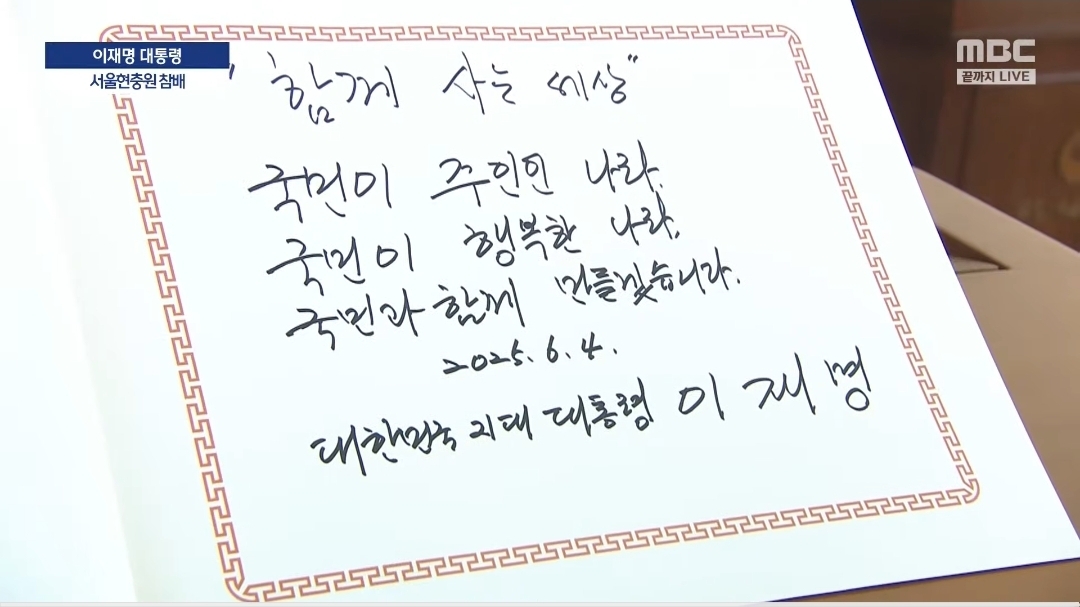 이재명 대통령
서울현충원 참배
MBC
끝까지 LIVE
"함께 사는 세상"
국민이 주인인 나라,
국민이 행복한 나라,
국민과 함께 만들겠습니다.
2025. 6. 4.
대한민국 21대 대통령 이재명